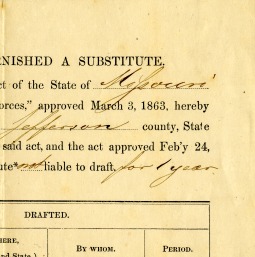 RNISHED A SUBSTITUTE.
ct of the State of Missouri
orces," approved March 3, 1863, hereby
Jefferson county, State
said act, and the act approved Feb'y 24,
ute not liable to draft, for 1 year.
DRAFTED.
HERE,
nd State.)
BY WHOM.
PERIOD.